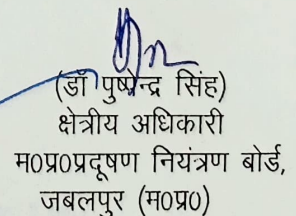 (डॉ पुष्पेन्द्र सिंह)
क्षेत्रीय अधिकारी
म0प्र0प्रदूषण नियंत्रण बोर्ड,
जबलपुर (म0प्र0)